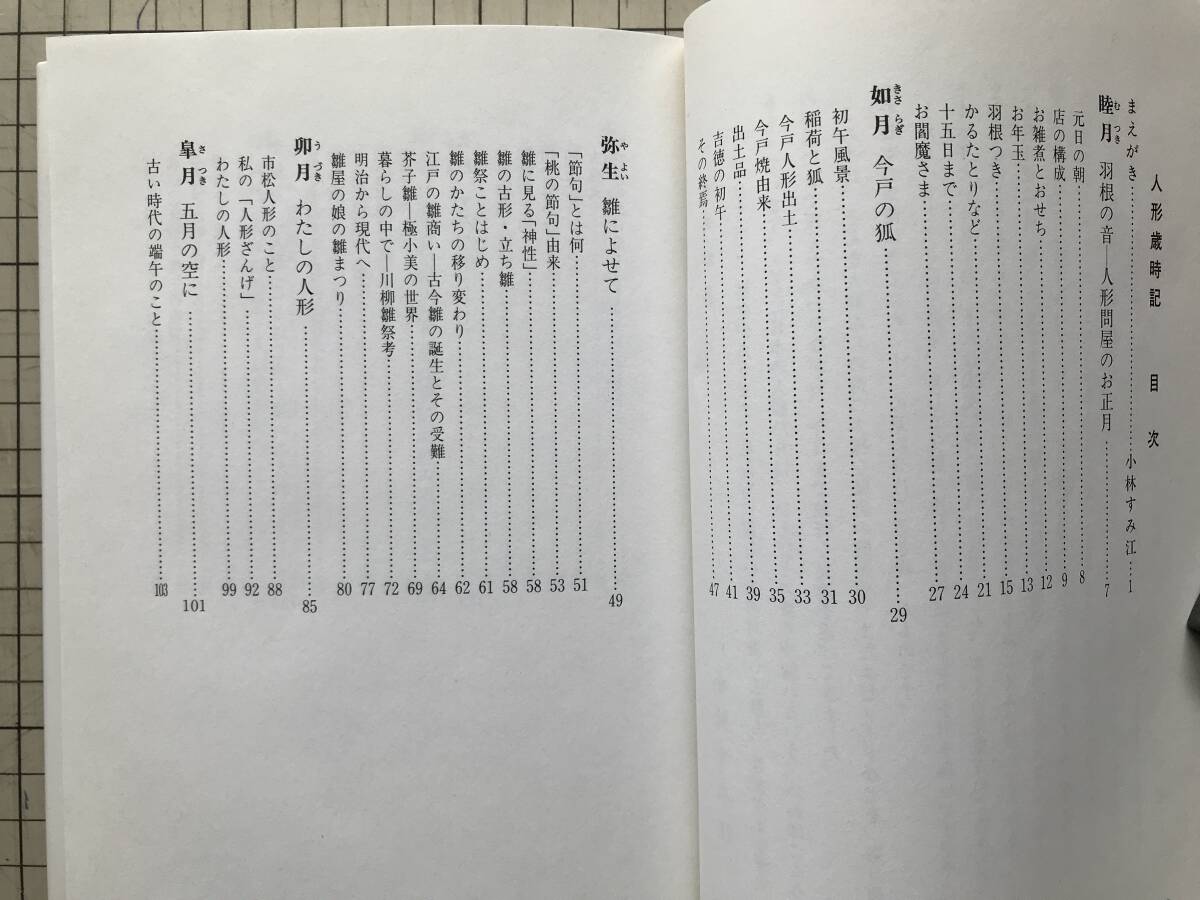 人形歳時記　目次
まえがき……小林すみ江…1
睦月　羽根の音―人形問屋のお正月……7
むつき
元日の朝……8
店の構成……9
お雑煮とおせち……12
お年玉……13
羽根つき……15
かるたとりなど……21
十五日まで……24
お閻魔さま……27
如月　今戸の狐……29
きさらぎ
初午風景……30
稲荷と狐……31
今戸人形出土……33
今戸焼由来……35
出土品……39
吉徳の初午……41
その終焉……47
弥生　雛によせて……49
やよい
「節句」とは何……51
「桃の節句」由来……53
雛に見る「神性」……58
雛の古形・立ち雛……58
雛祭ことはじめ……61
雛のかたちの移り変わり……62
江戸の雛商い―古今雛の誕生とその受難……64
芥子雛―極小美の世界……69
暮らしの中で―川柳雛祭考……72
明治から現代へ……77
雛屋の娘の雛まつり……80
卯月　わたしの人形……85
うづき
市松人形のこと……88
私の「人形ざんげ」……92
わたしの人形……99
皐月　五月の空に……101
さつき
古い時代の端午のこと……103